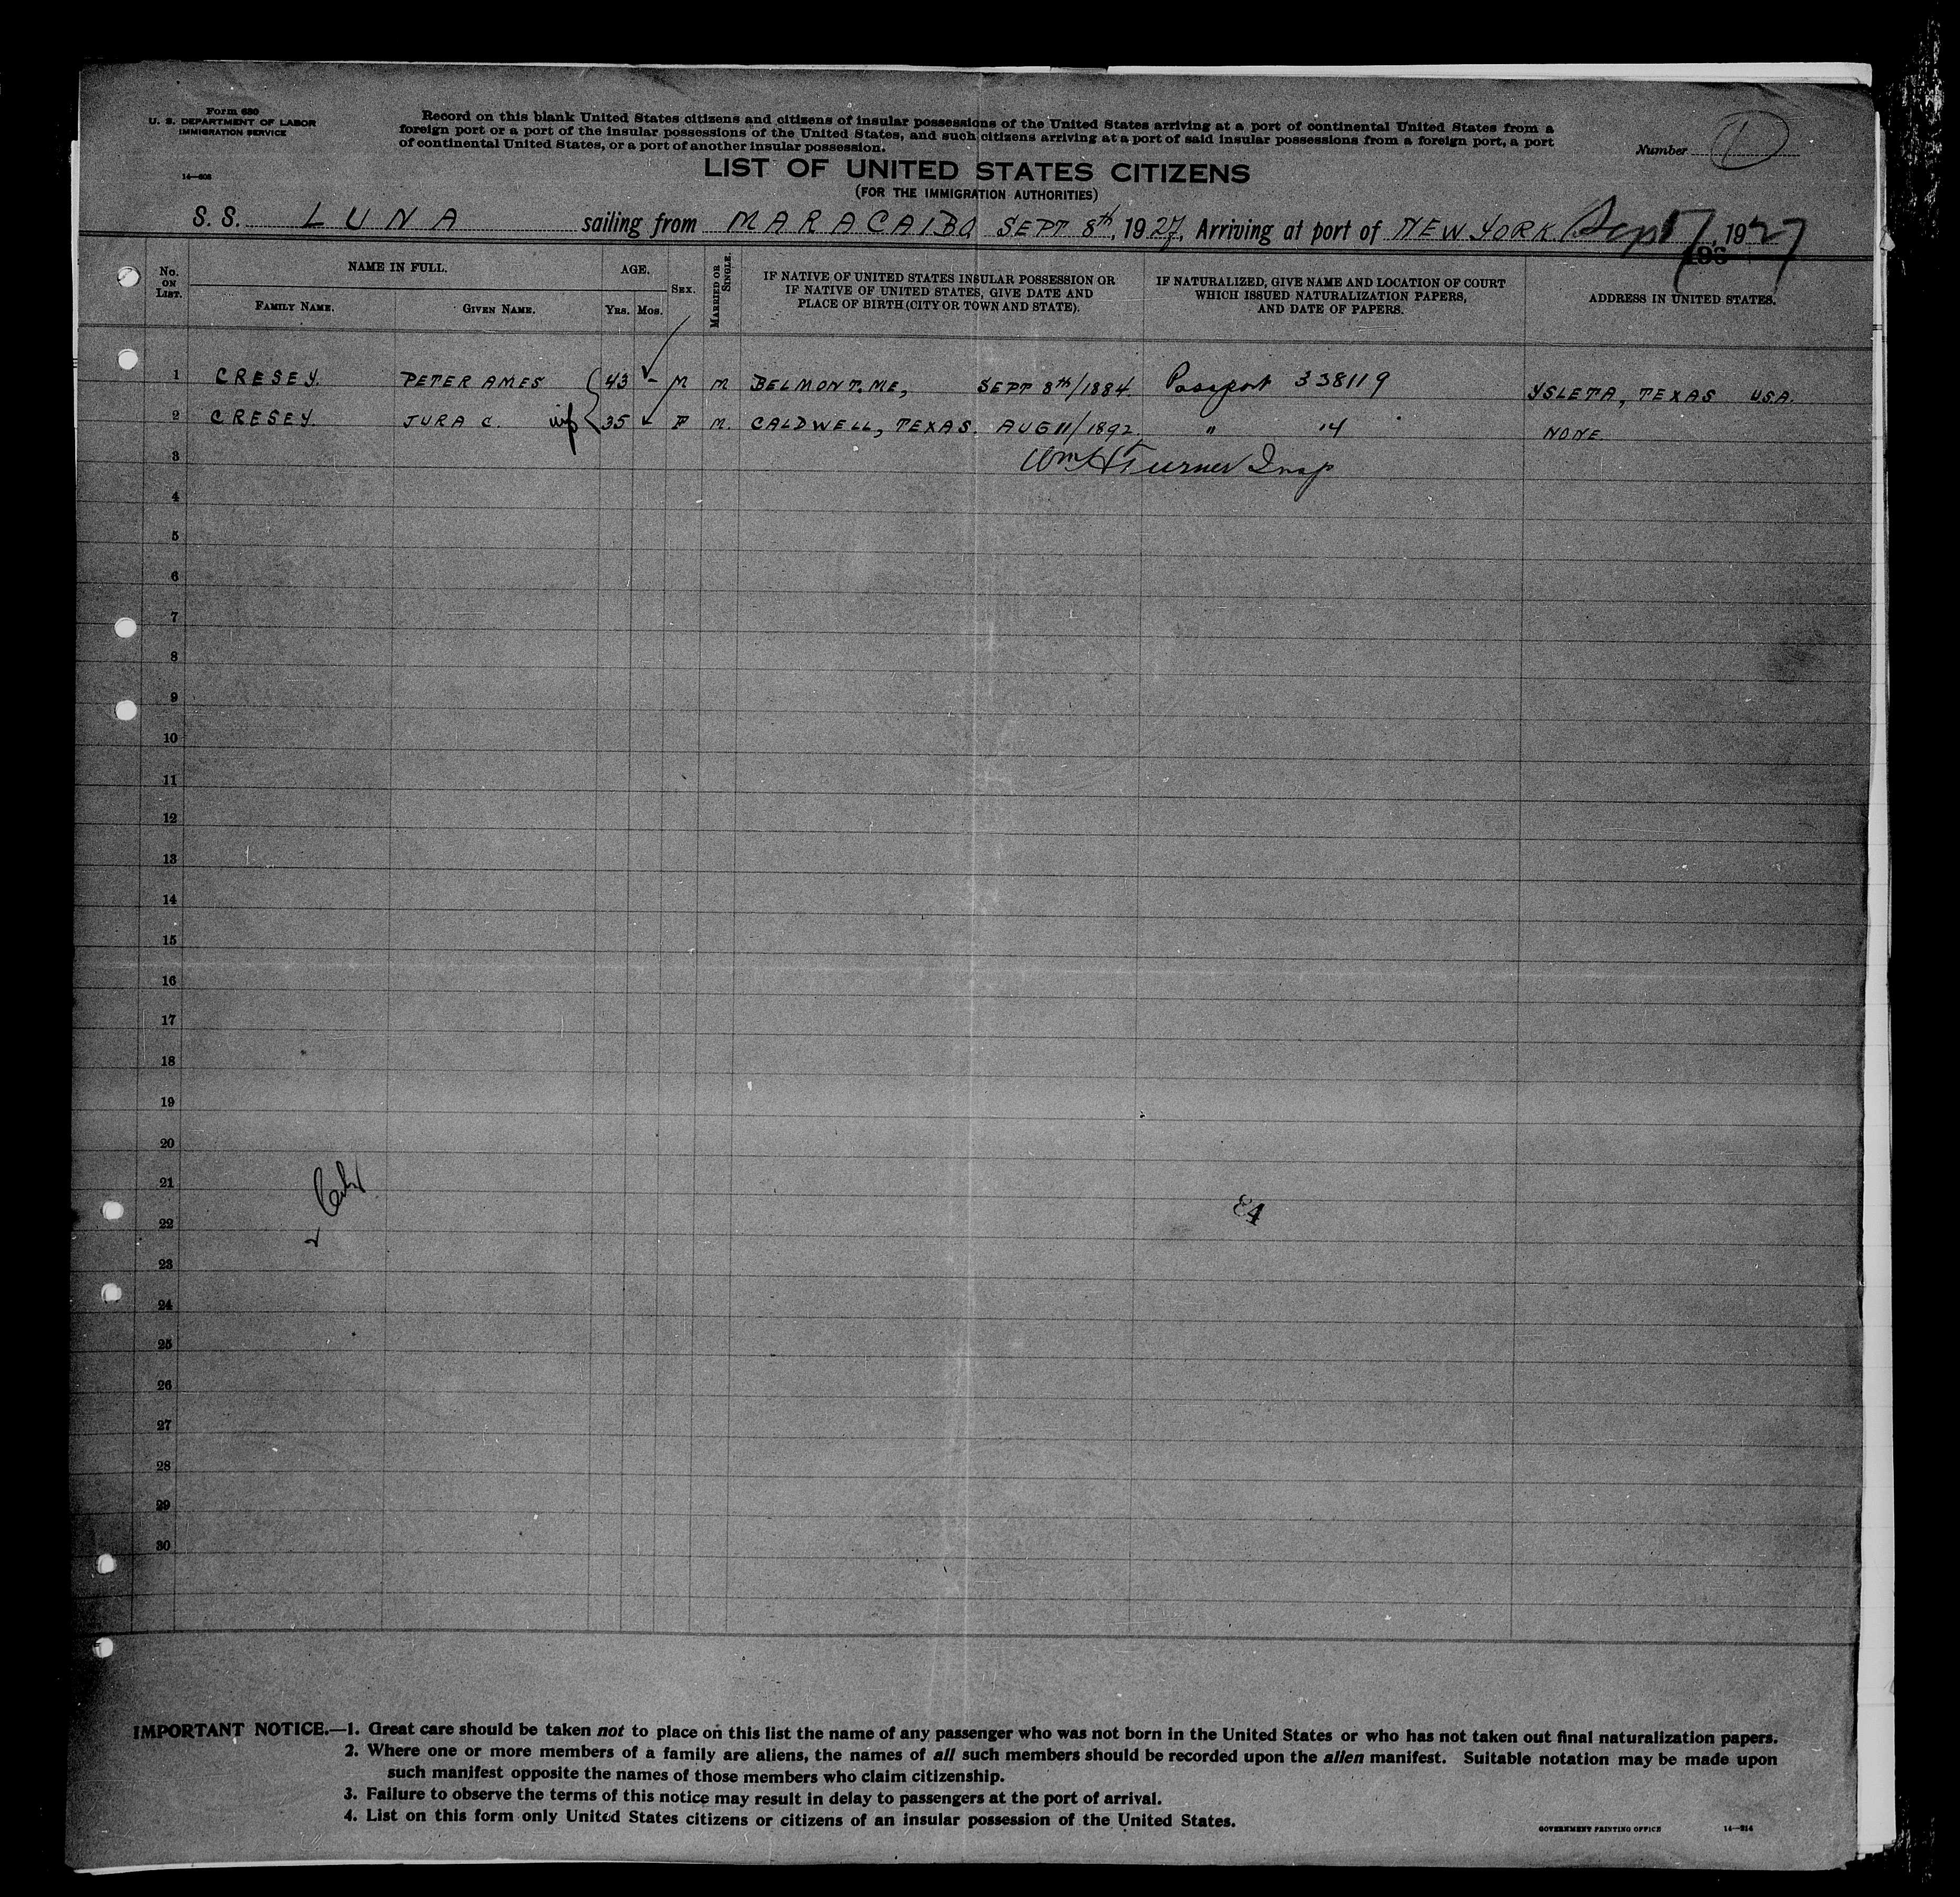 Form 630
U. S. DEPARTMENT OF LABOR
IMMIGRATION SERVICE
14—608
Record on this blank United States citizens and citizens of insular possessions of the United States arriving at a port of continental United States from a
foreign port or a port of the insular possessions of the United States, and such citizens arriving at a port of said insular possessions from a foreign port, a port
of continental United States, or a port of another insular possession.
Number 1
LIST OF UNITED STATES CITIZENS
(FOR THE IMMIGRATION AUTHORITIES)
S. S. LUNA sailing from MARACAIBO SEPT 8th, 1927, Arriving at port of NEW YORK Sept 17, 1927
No. ON LIST.
NAME IN FULL.
FAMILY NAME.
GIVEN NAME.
AGE.
YRS. MOS.
SEX.
MARRIED OR SINGLE.
IF NATIVE OF UNITED STATES INSULAR POSSESSION OR
IF NATIVE OF UNITED STATES, GIVE DATE AND
PLACE OF BIRTH (CITY OR TOWN AND STATE).
IF NATURALIZED, GIVE NAME AND LOCATION OF COURT
WHICH ISSUED NATURALIZATION PAPERS,
AND DATE OF PAPERS.
ADDRESS IN UNITED STATES.
1 CRESEY. PETER AMES 43 - M M BELMONT. ME, SEPT 8th/1884. Passport 338119 YSLETA, TEXAS USA.
2 CRESEY. JURA C. wf 35 F M. CALDWELL, TEXAS. AUG 11/1892. " " NONE
3 Wm H Turner Insp
4
5
6
7
8
9
10
11
12
13
14
15
16
17
18
19
20
21
22
84
23
24
25
26
27
28
29
30
IMPORTANT NOTICE.—1. Great care should be taken not to place on this list the name of any passenger who was not born in the United States or who has not taken out final naturalization papers.
2. Where one or more members of a family are aliens, the names of all such members should be recorded upon the alien manifest. Suitable notation may be made upon
such manifest opposite the names of those members who claim citizenship.
3. Failure to observe the terms of this notice may result in delay to passengers at the port of arrival.
4. List on this form only United States citizens or citizens of an insular possession of the United States.
GOVERNMENT PRINTING OFFICE 14—214